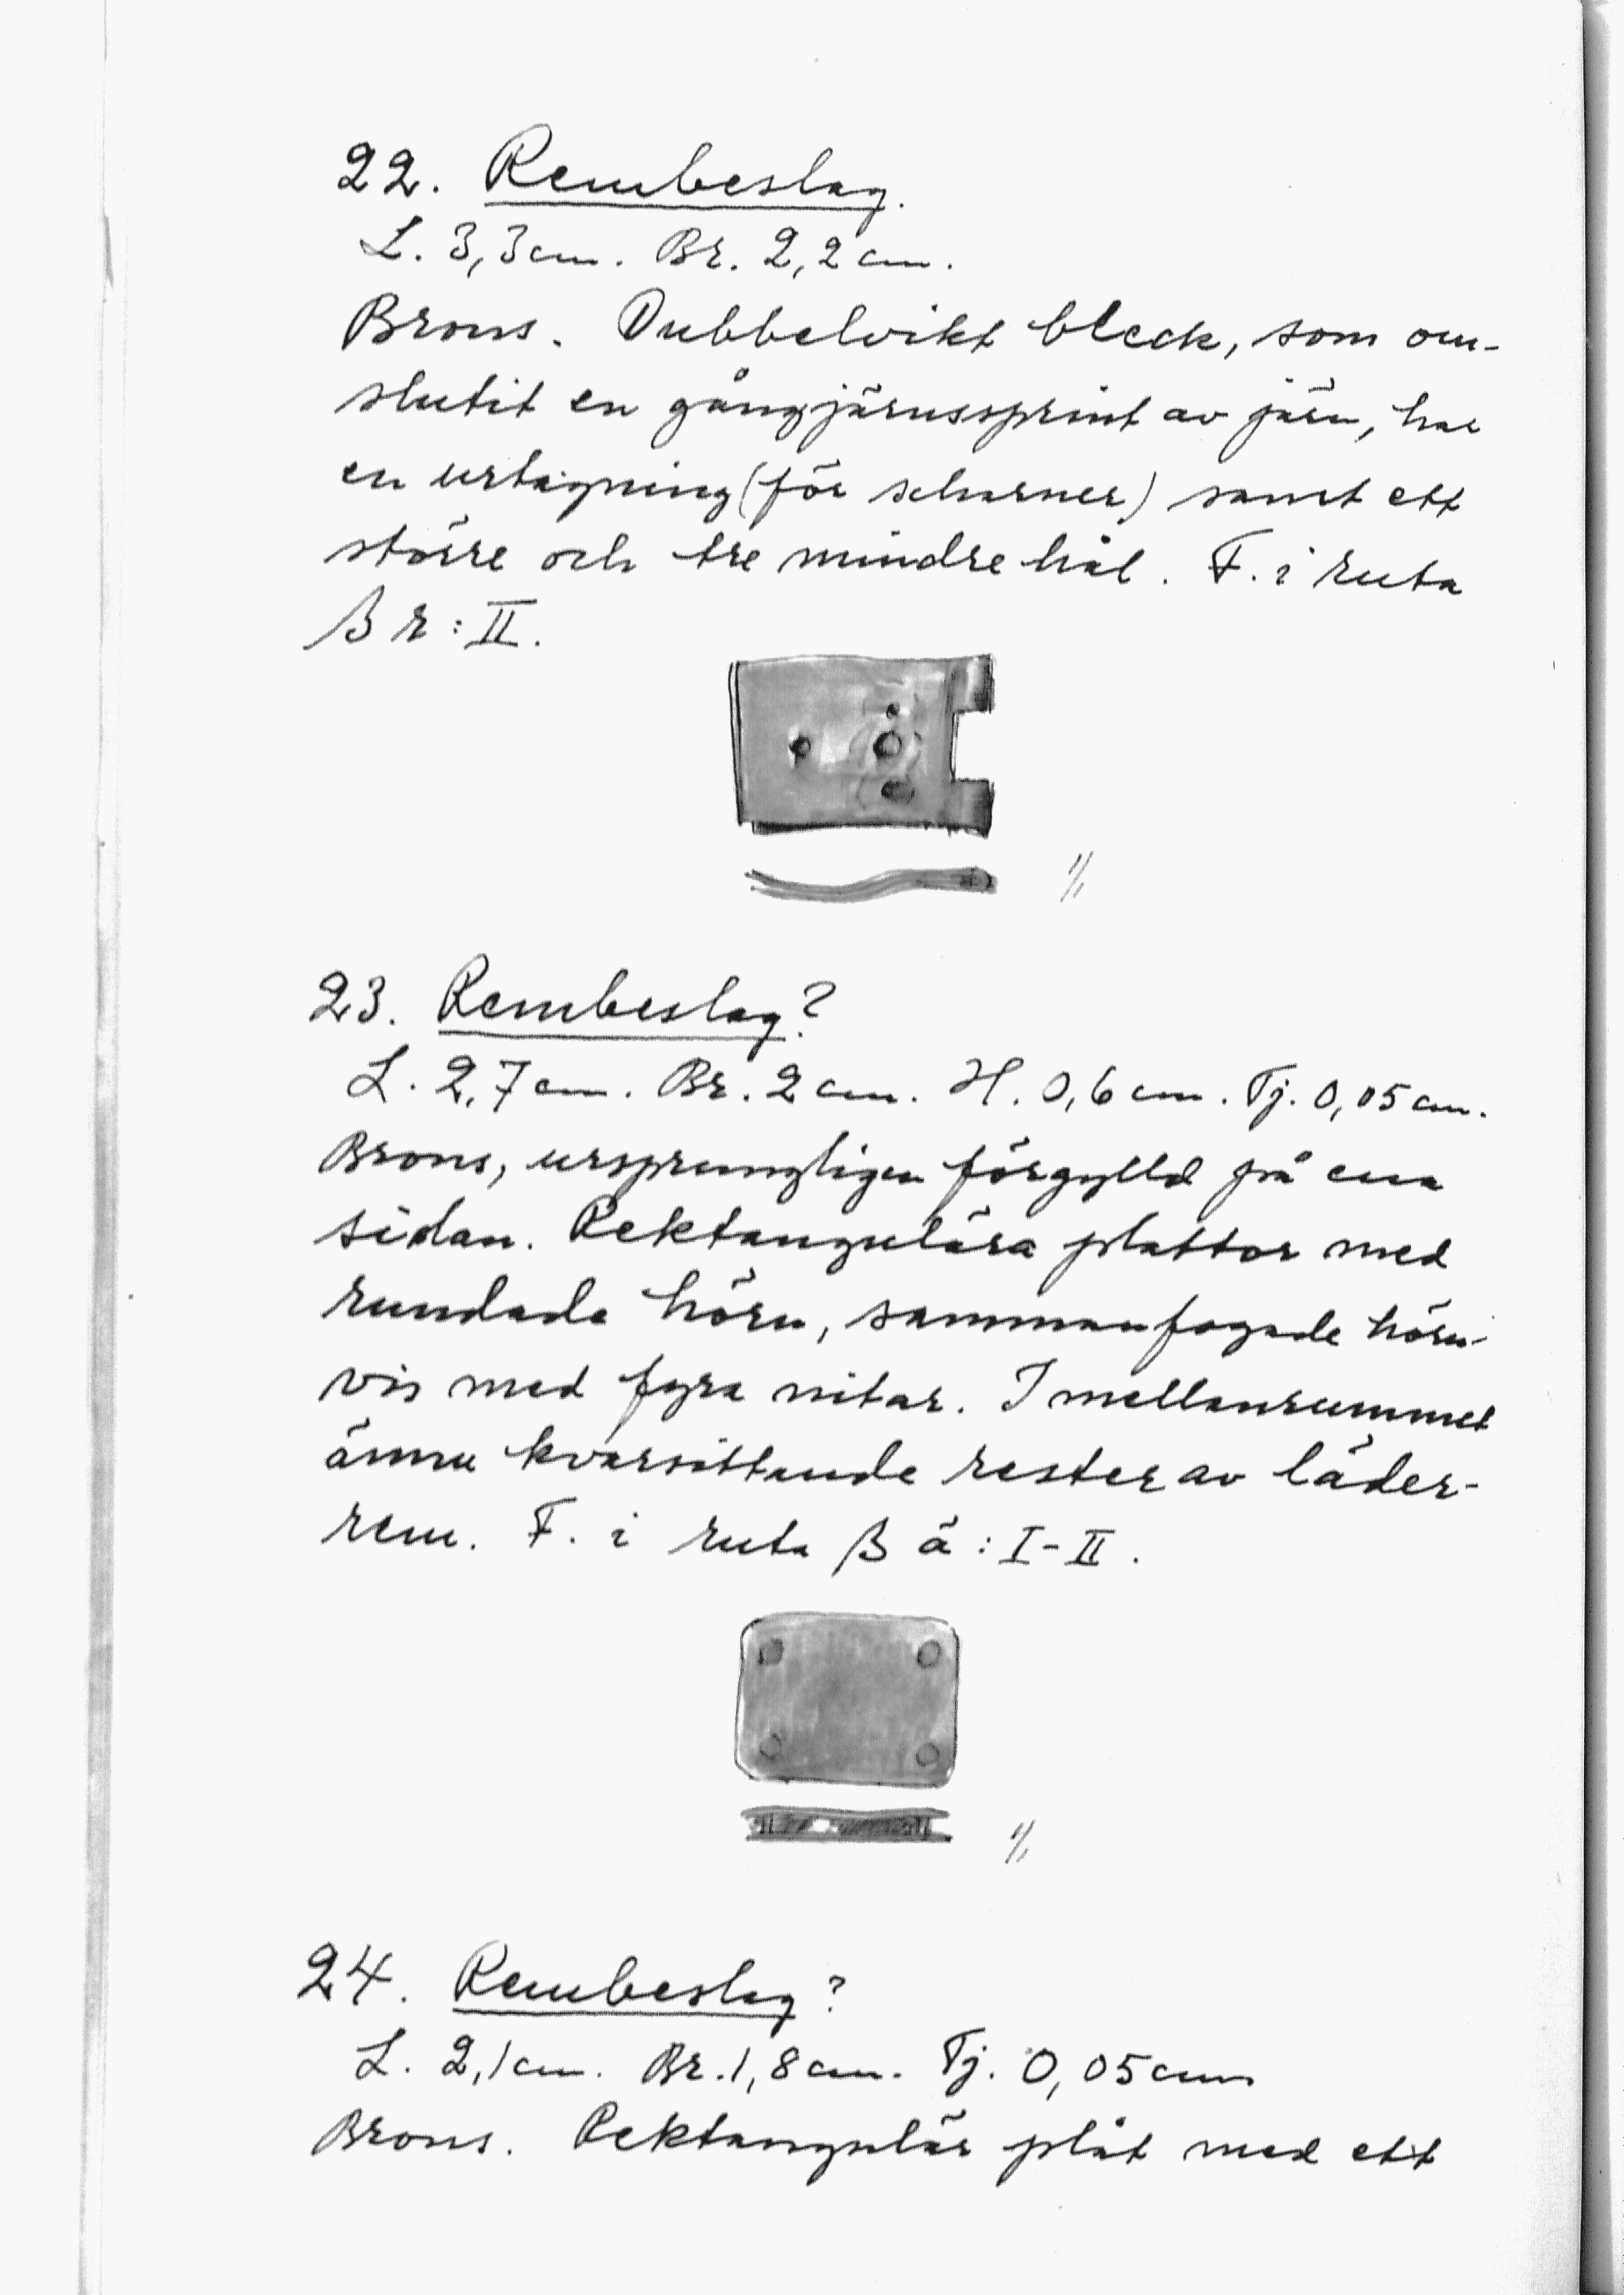 22. Rembeslag.
L. 3,3 cm. Br. 2,2 cm.
Brons. Dubbelvikt bleck, som om-
slutit en gångjärnssprint av järn, har
en urtagning (för scharner) samt ett
större och tre mindre hål. F. i ruta
β r : II.
1/1
23. Rembeslag?
L. 2,7 cm. Br. 2 cm. H. 0,6 cm. Tj. 0,05 cm.
Brons, ursprungligen förgylld på ena
sidan. Rektangulära plattor med
rundade hörn, sammanfogade hörn-
vis med fyra nitar. I mellanrummet
ännu kvarsittande rester av läder-
rem. F. i ruta β ä : I-II.
1/1
24. Rembeslag?
L. 2,1 cm. Br. 1,8 cm. Tj. 0,05 cm
Brons. Rektangulär plåt med ett